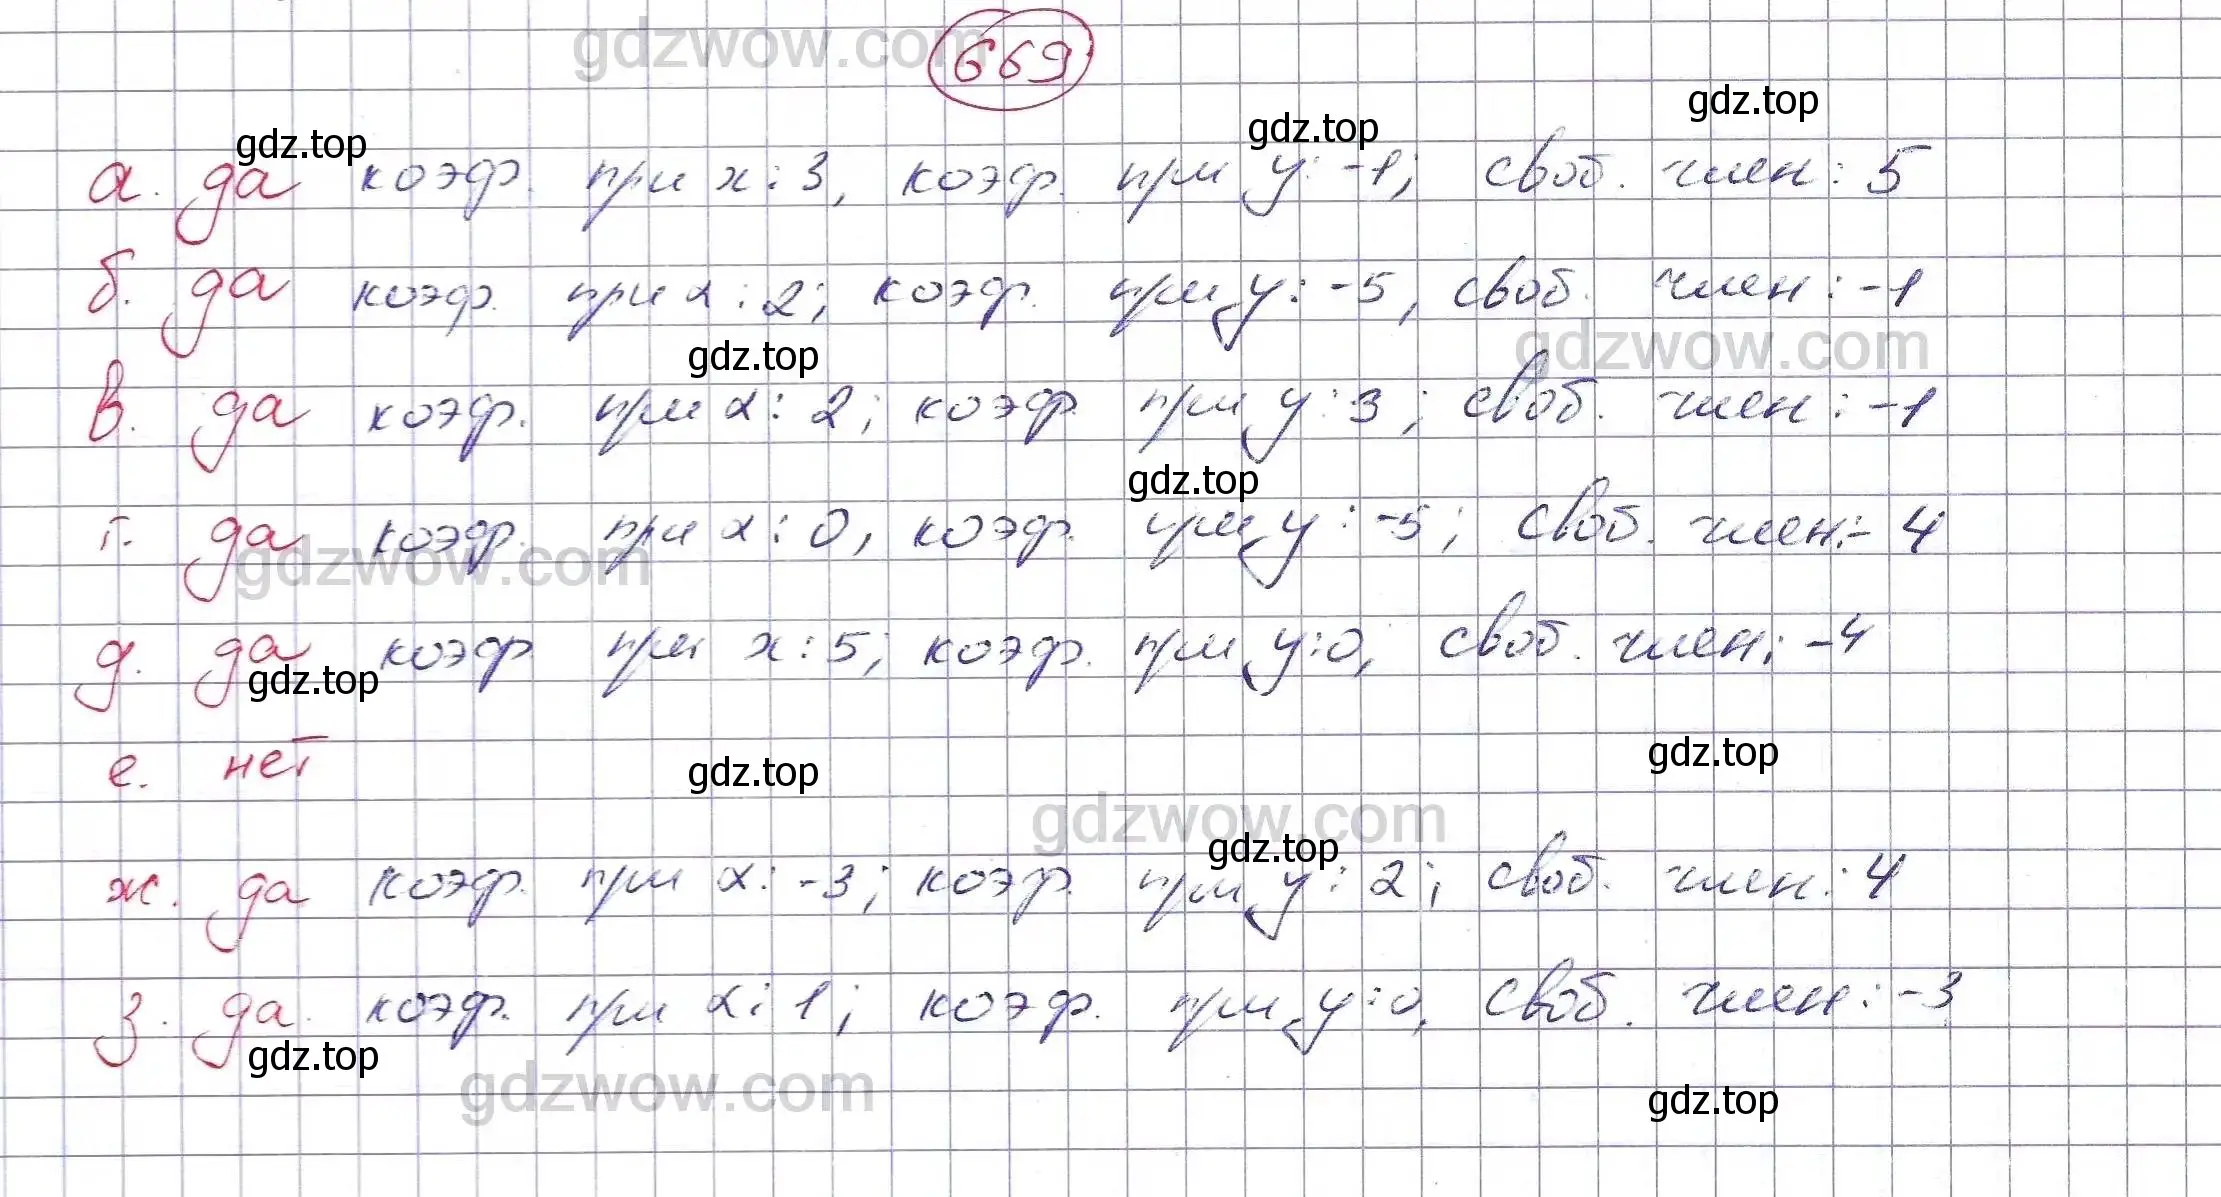 gdzwow.com
669
gdz.top
gdz.top gdz.top
а. да коэф. при х: 3, коэф. при у: -1; своб. член: 5
б. да коэф. при х: 2; коэф. при у: -5, своб. член: -1
gdzwow.com
gdz.top
в. да коэф. при х: 2; коэф при у: 3; своб. член: -1
gdz.top
г. да коэф. при х: 0, коэф. при у: -5; своб. член: - 4
gdzwow.com
д. да коэф при х: 5; коэф. при у: 0; своб. член: -4
gdz.top
е. нет
gdz.top gdz.top
gdzwow.com
gdz.top
ж. да коэф. при х: -3; коэф. при у: 2; своб. член: 4
з. да. коэф. при х: 1; коэф. при у: 0, своб. член: -3
gdz.top
gdzwow.com
gdz.top